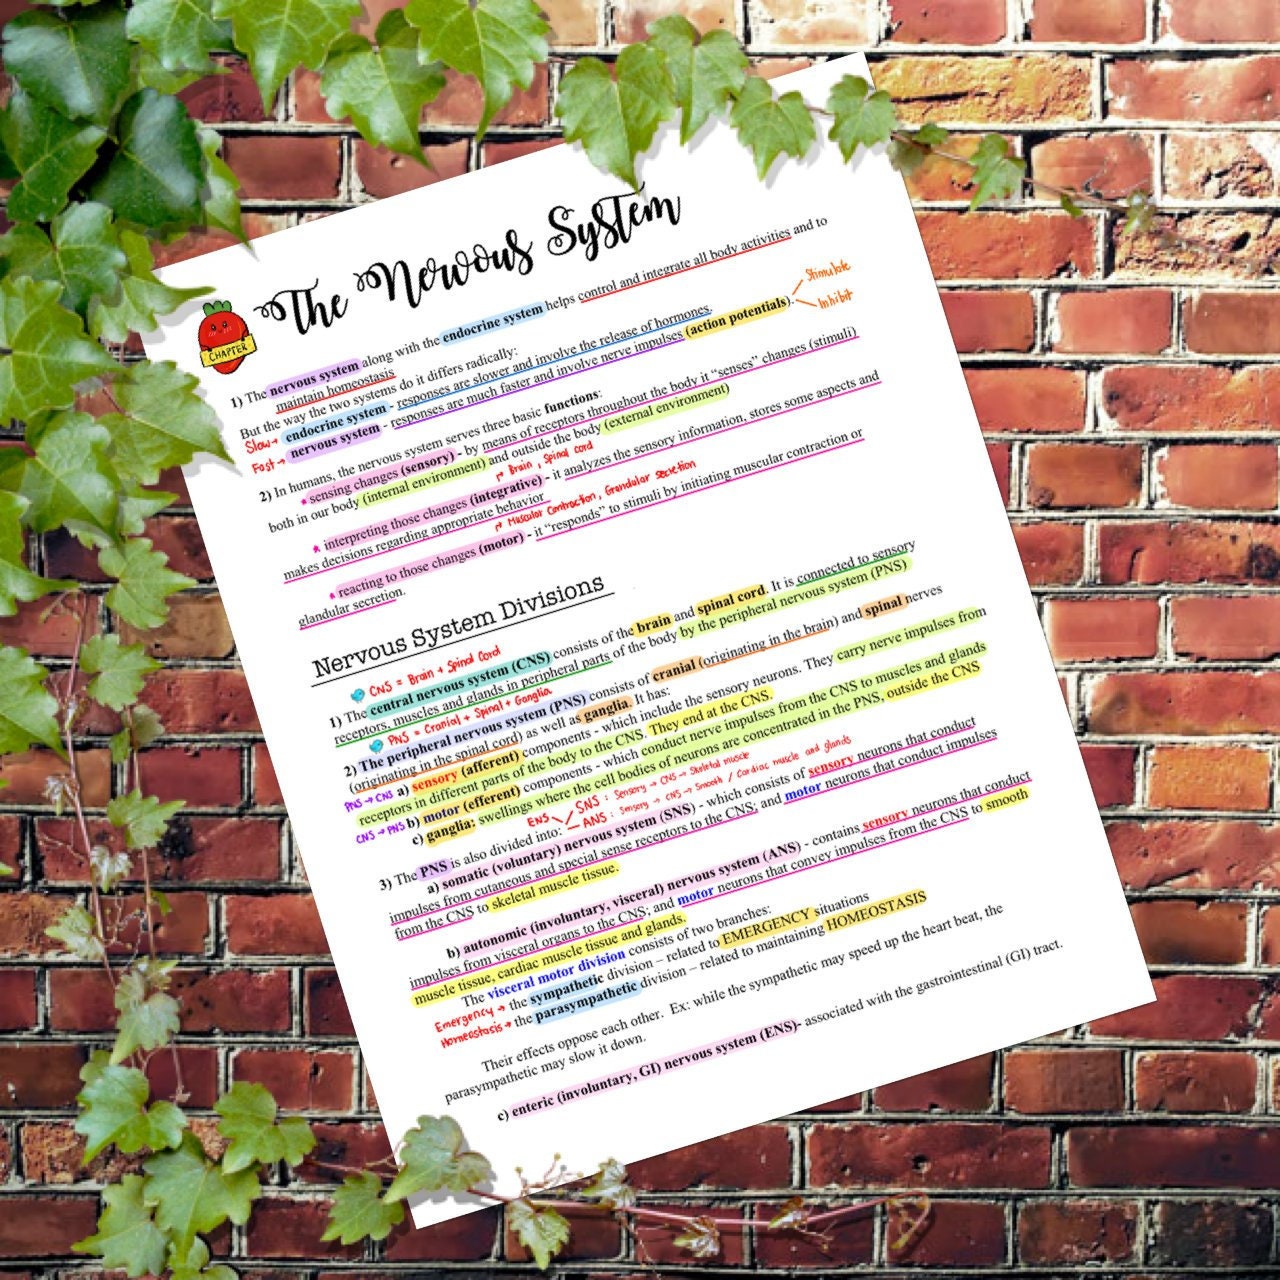 The Nervous System
CHAPTER
1) The nervous system along with the endocrine system helps control and integrate all body activities and to
maintain homeostasis
But the way the two systems do it differs radically:
Slow→ endocrine system - responses are slower and involve the release of hormones.
Fast→ nervous system - responses are much faster and involve nerve impulses (action potentials).
Stimulate
Inhibit
2) In humans, the nervous system serves three basic functions:
sensing changes (sensory) - by means of receptors throughout the body it “senses” changes (stimuli)
both in our body (internal environment) and outside the body (external environment)
Brain, Spinal cord
interpreting those changes (integrative) - it analyzes the sensory information, stores some aspects and
makes decisions regarding appropriate behavior
Muscular Contraction, Grandular secretion
reacting to those changes (motor) - it “responds” to stimuli by initiating muscular contraction or
glandular secretion.
Nervous System Divisions
CNS = Brain + Spinal Cord
1) The central nervous system (CNS) consists of the brain and spinal cord. It is connected to sensory
receptors, muscles and glands in peripheral parts of the body by the peripheral nervous system (PNS)
PNS = Cranial + Spinal + Ganglia
2) The peripheral nervous system (PNS) consists of cranial (originating in the brain) and spinal nerves
(originating in the spinal cord) as well as ganglia. It has:
PNS → CNS a) sensory (afferent) components - which include the sensory neurons. They carry nerve impulses from
receptors in different parts of the body to the CNS. They end at the CNS.
CNS → PNS b) motor (efferent) components - which conduct nerve impulses from the CNS to muscles and glands
c) ganglia: swellings where the cell bodies of neurons are concentrated in the PNS, outside the CNS
3) The PNS is also divided into:
ENS
SNS : Sensory → CNS → Skeletal muscle
ANS : Sensory → CNS → Smooth / Cardiac muscle and glands
a) somatic (voluntary) nervous system (SNS) - which consists of sensory neurons that conduct
impulses from cutaneous and special sense receptors to the CNS; and motor neurons that conduct impulses
from the CNS to skeletal muscle tissue.
b) autonomic (involuntary, visceral) nervous system (ANS) - contains sensory neurons that conduct
impulses from visceral organs to the CNS; and motor neurons that convey impulses from the CNS to smooth
muscle tissue, cardiac muscle tissue and glands.
The visceral motor division consists of two branches:
Emergency → the sympathetic division – related to EMERGENCY situations
Homeostasis → the parasympathetic division – related to maintaining HOMEOSTASIS
Their effects oppose each other. Ex: while the sympathetic may speed up the heart beat, the
parasympathetic may slow it down.
c) enteric (involuntary, GI) nervous system (ENS)- associated with the gastrointestinal (GI) tract.